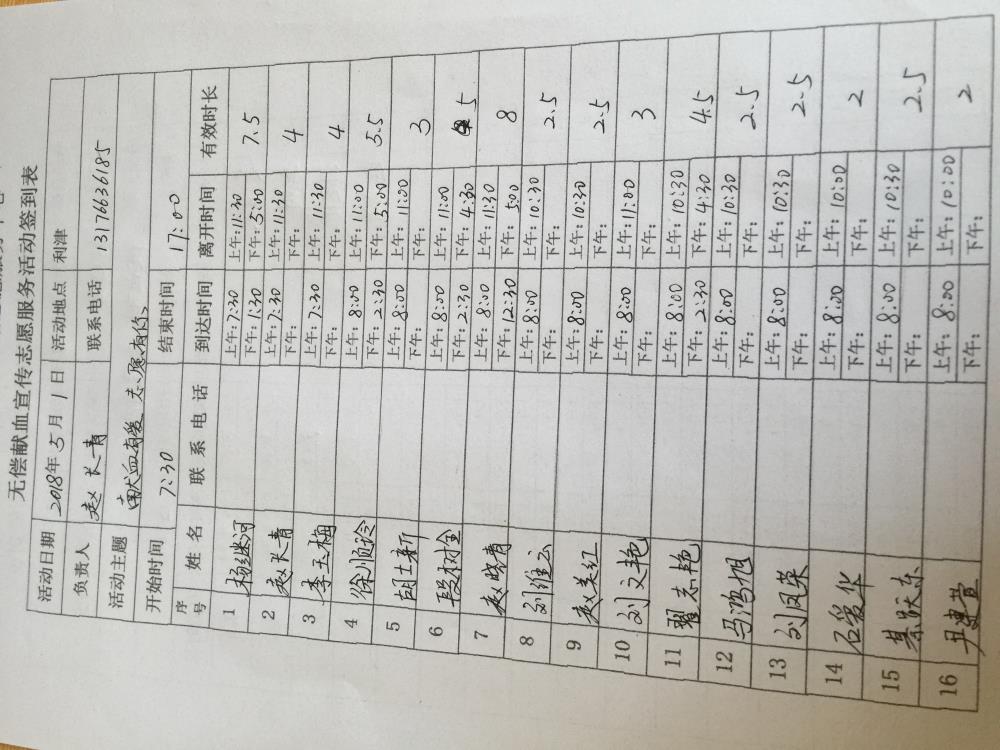 无偿献血宣传志愿服务活动签到表
活动日期 2018年5月1日 活动地点 利津
负责人 赵长青 联系电话 13176636185
活动主题 献血有爱 志愿有你、
开始时间 7:30 结束时间 17:00
序号 姓名 联系电话 到达时间 离开时间 有效时长
1 杨继河 上午:7:30 上午:11:30 7.5
下午:1:30 下午:5:00
2 赵长青 上午:7:30 上午:11:30 4
下午: 下午:
3 李玉梅 上午:7:30 上午:11:30 4
下午: 下午:
4 徐顺玲 上午:8:00 上午:11:00 5.5
下午:2:30 下午:5:00
5 胡士新 上午:8:00 上午:11:00 3
下午: 下午:
6 段树全 上午:8:00 上午:11:00 5
下午:2:30 下午:4:30
7 赵晓青 上午:8:00 上午:11:30 8
下午:12:30 下午:5:00
8 刘维云 上午:8:00 上午:10:30 2.5
下午: 下午:
9 赵美红 上午:8:00 上午:10:30 2.5
下午: 下午:
10 刘文艳 上午:8:00 上午:11:00 3
下午: 下午:
11 翟志艳 上午:8:00 上午:10:30 4.5
下午:2:30 下午:4:30
12 马鸿旭 上午:8:00 上午:10:30 2.5
下午: 下午:
13 刘凤英 上午:8:00 上午:10:30 2.5
下午: 下午:
14 石爱华 上午:8:00 上午:10:00 2
下午: 下午:
15 綦跃东 上午:8:00 上午:10:30 2.5
下午: 下午:
16 上午:8:00 上午:10:00 2
下午: 下午: